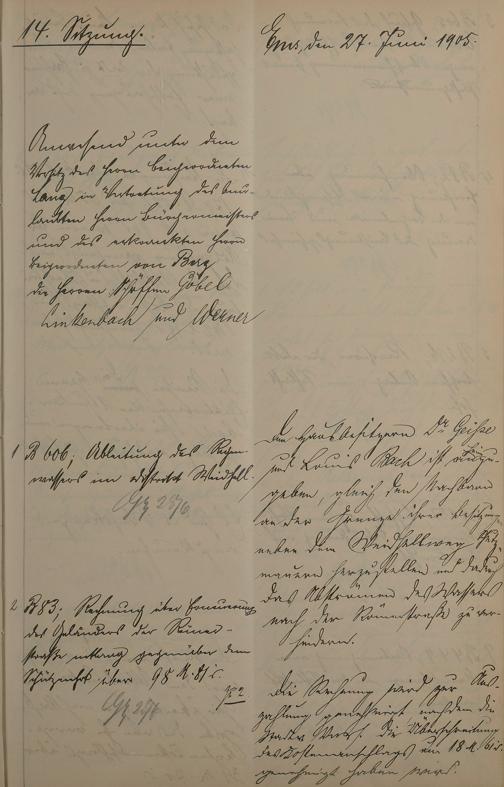 14. Sitzung.
Ems, den 27. Juni 1905.
Anwesend unter dem
Vorsitz des Herrn Beigeordneten
Lang in Vertretung des beur-
laubten Herrn Bürgermeisters
und des erkrankten Herrn
Beigeordneten von Berg
die Herren Schöffen Göbel
Linkenbach und Werner
1 B 606; Ableitung des Regen-
wassers im Distrikt Weidhell.
Den Hausbesitzern Dr Geisse
und Louis Bach ist aufzu-
geben, gleich den Nachbarn
an der Grenze ihrer Besitzung
neben dem Weidhellweg
mauern herzustellen und dadurch
das Abströmen des Wassers
nach der Römerstraße zu ver-
hindern.
2 B 83; Rechnung über Erneuerung
des Geländers der Römer-
straße entlang gegenüber dem
Schützenhof über 98 M. 81
Die Rechnung wird zur Aus-
zahlung genehmigt nachdem die
Stadtv. Vers. die Überschreitung
des Kostenanschlags um 18 M 61
genehmigt haben wird.